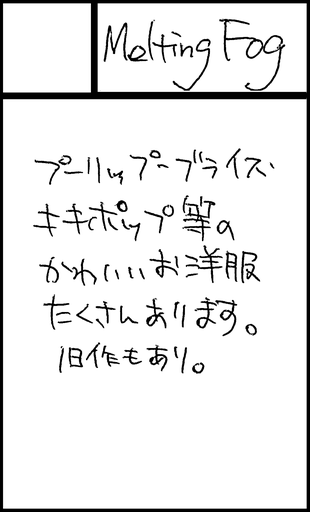 Melting Fog
プーリップーブライス・
キキポップ等の
かわいいお洋服
たくさんあります。
旧作もあり。